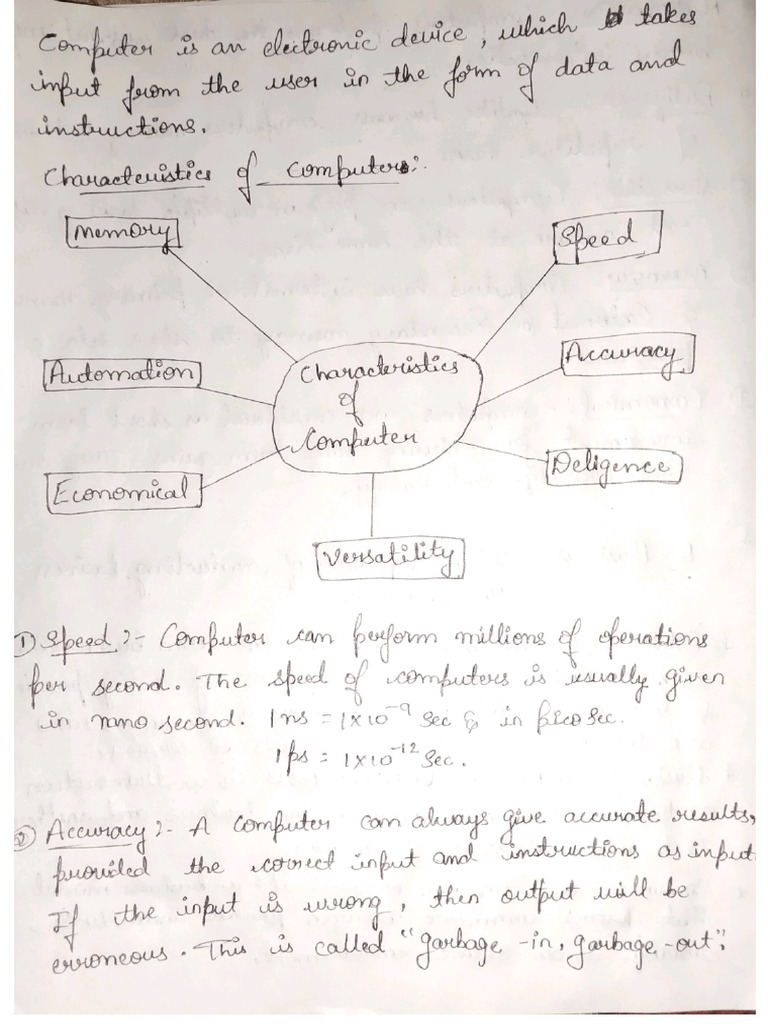 Computer is an electronic device, which takes
input from the user in the form of data and
instructions.
Characteristics of Computers:-
Memory
Speed
Automation
Accuracy
Characteristics
of
Computer
Economical
Deligence
Versatility
① Speed :- Computer can perform millions of operations
per second. The speed of computers is usually given
in nano second. 1 ns = 1×10⁻⁹ Sec & in pico Sec.
1 ps = 1×10⁻¹² Sec.
② Accuracy :- A computer can always give accurate results,
provided the correct input and instructions as input.
If the input is wrong, then output will be
erroneous. This is called "garbage-in, garbage-out".